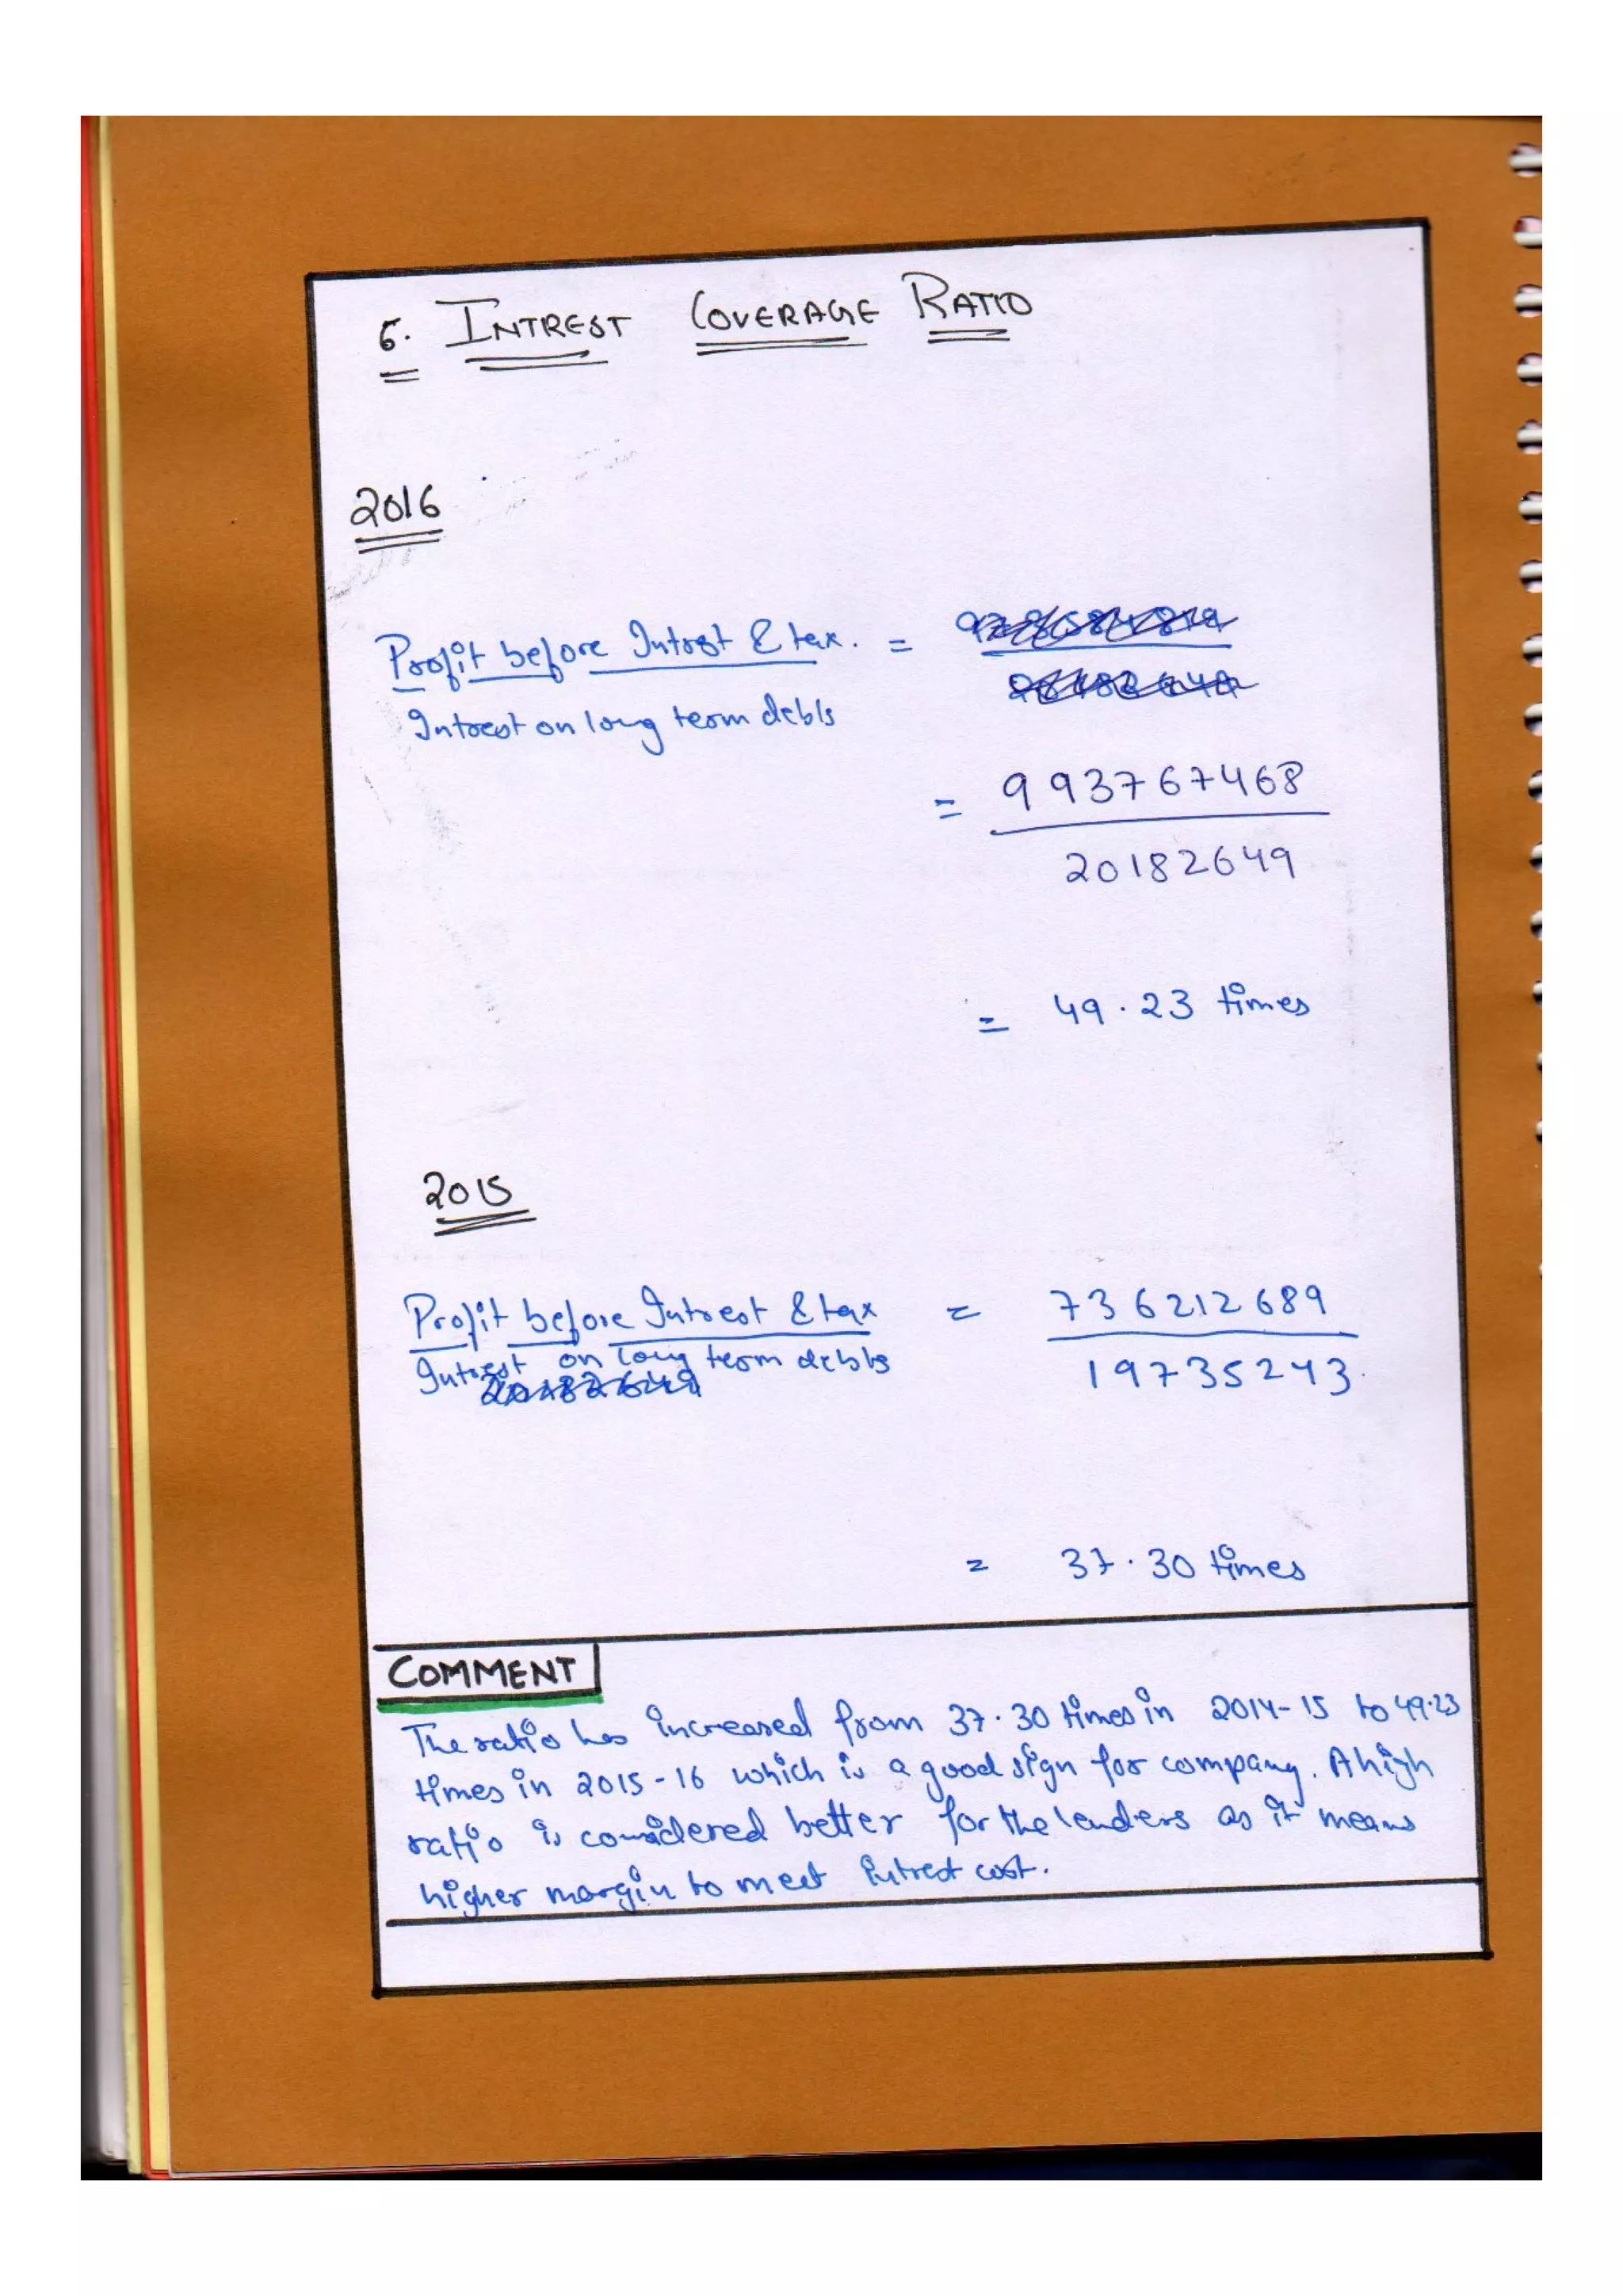 5. INTREST COVERAGE RATIO
2016
Profit before Intrest & tax. =
Intrest on long term debts
= 993767468
20182649
= 49.23 times
2015
Profit before Intrest & tax = 736212689
Intrest on long term debts 19735243
20182649
= 37.30 times
COMMENT
The ratio has increased from 37.30 times in 2014-15 to 49.23
times in 2015-16 which is a good sign for company. A high
ratio is considered better for the lenders as it means
higher margin to meet intrest cost.